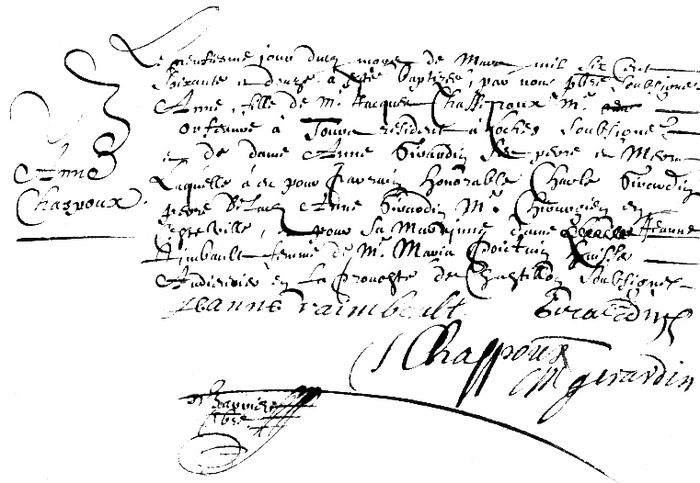 Le huictiesme jour du moys de Mars mil six Cent
Soixante et douze à estée baptizée, par nous pbre Soubsigné
Anne, fille de Mr. Jacques Chaspoux Mr.
orfeuvre à Tours résident à Loches Soubsigné
et de dame Anne Girardin Ses père et Mère
Laquelle à eu pour parrain Honorable Charle Girardin
père de lad. Anne Girardin Mr. Chirurgien en
ceste Ville, et pour Sa Marrinne dame Jeanne
Raimbault femme de Mr. Maria
Audiencier en La prevosté de Chastillon Soubsignez
Anne
Chaspoux
Jeanne raimbault Girardin
J Chaspoux
M girardin